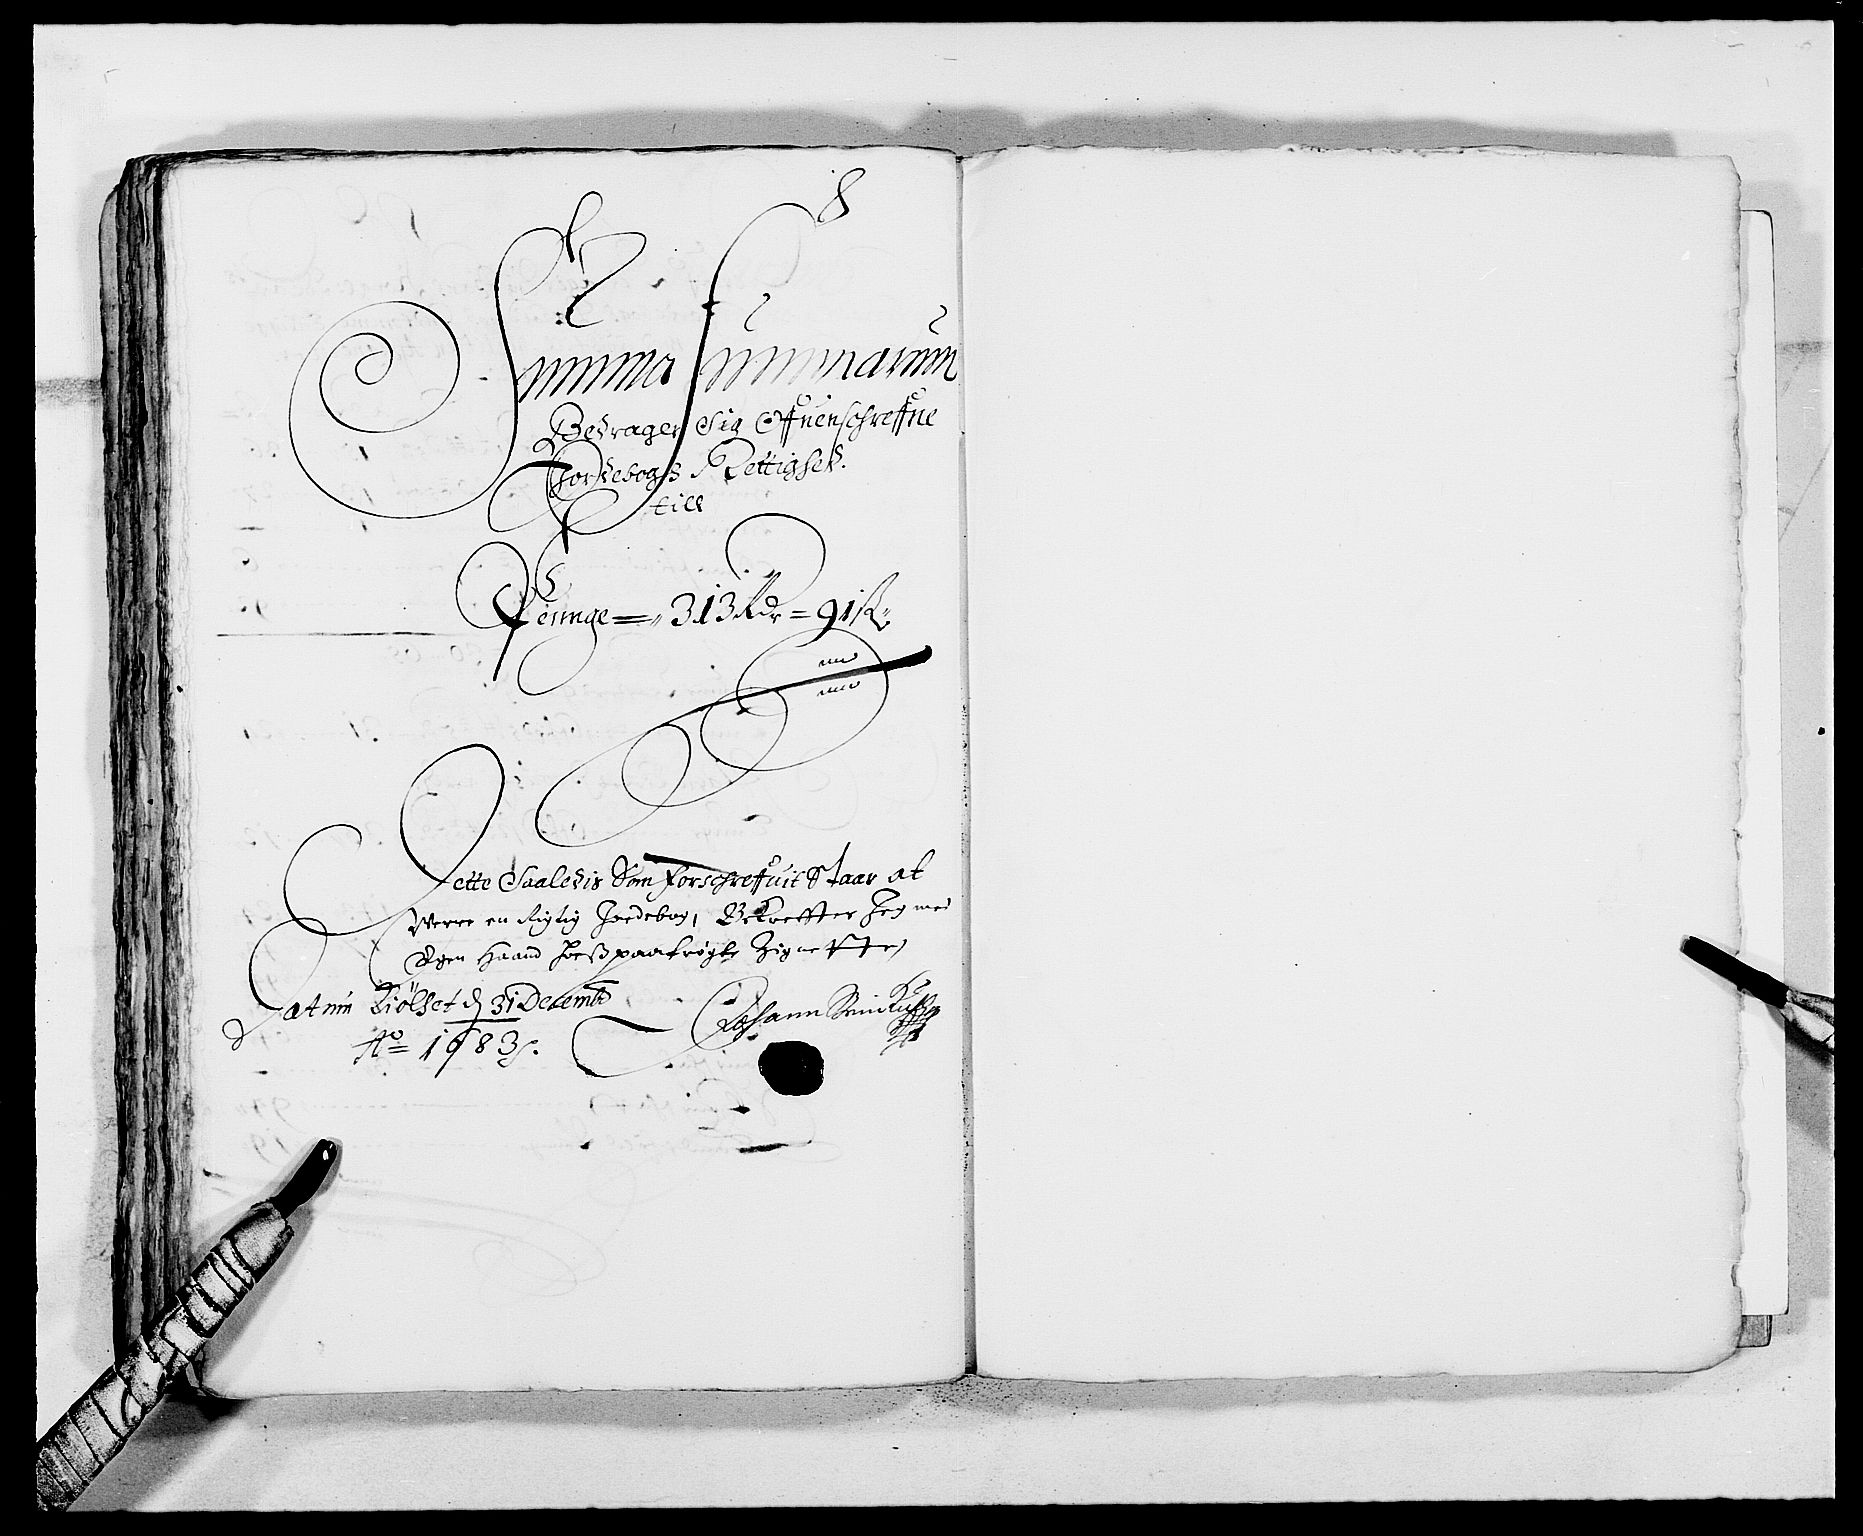 8
Summa Summarum
Bedrager Sig Offuenschreffne
Jordebogs Rettighed.
till
Penge = 313 Rdr = 91 ß
Dette Saaledis Som forschreffuit Staar at
Werre en Rigtig Jordebog, Bekreffter Jeg med
Egen Haand hoes paatrøgte Zignette,
Datum Kiølset d 31 Decembr
Ao 1683.
Johann